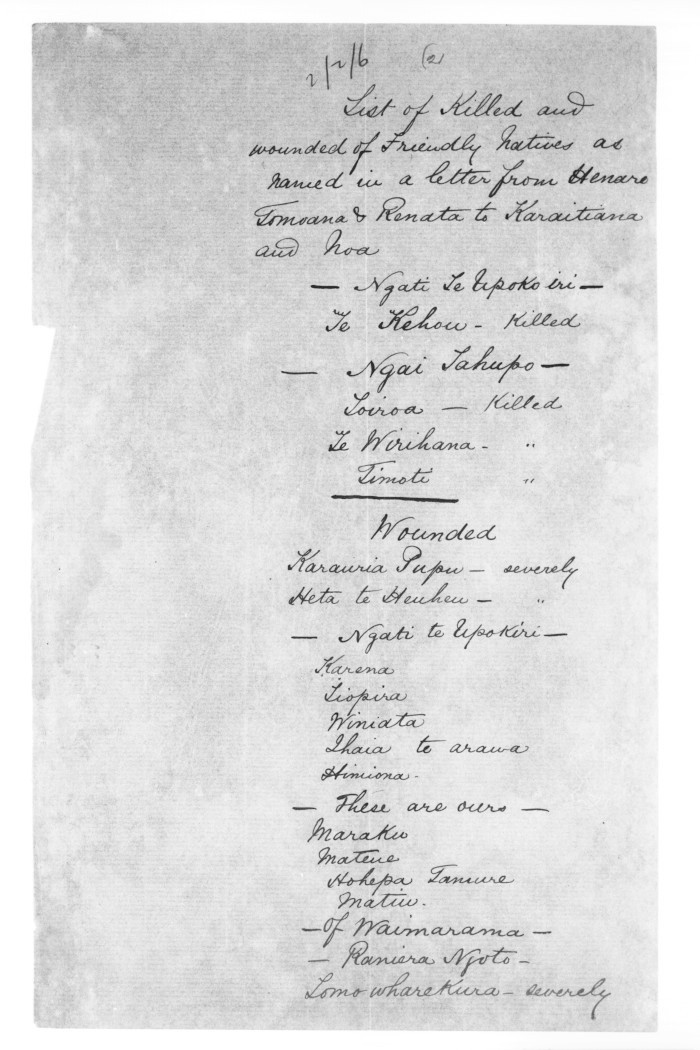 (2)
List of Killed and
wounded of Friendly Natives as
named in a letter from Henare
Tomoana & Renata to Karaitiana
and Noa
— Ngati Te Upoko iri —
Te Kehou - Killed
— Ngai Tahupo —
Toiroa — Killed
Te Wirihana - "
Timoti "
Wounded
Karauria Pupu — severely
Heta te Heuheu — "
— Ngati te Upokiri —
Karena
Tiopira
Winiata
Ihaia te arawa
Himiona.
— These are ours —
Maraku
Matene
Hohepa Tamure
Matiu.
— of Waimarama —
— Raniera Ngoto —
Tomo wharekura — severely